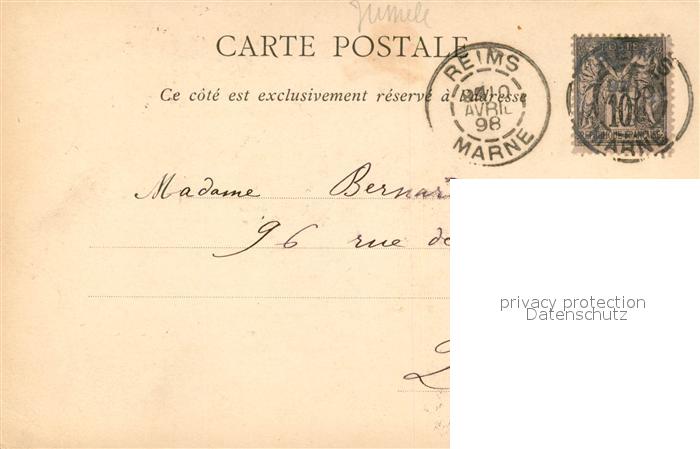 Jumele
CARTE POSTALE
Ce côté est exclusivement réservé à l'adresse
REIMS
AVRIL
98
MARNE
POSTES
10
REPUBLIQUE FRANÇAISE
Madame Bernar
96 rue de
privacy protection
Datenschutz